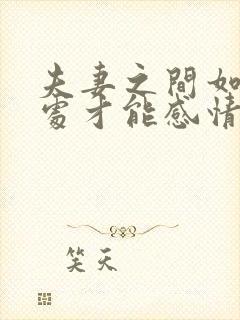 夫妻之間如
處才能感情
笑天